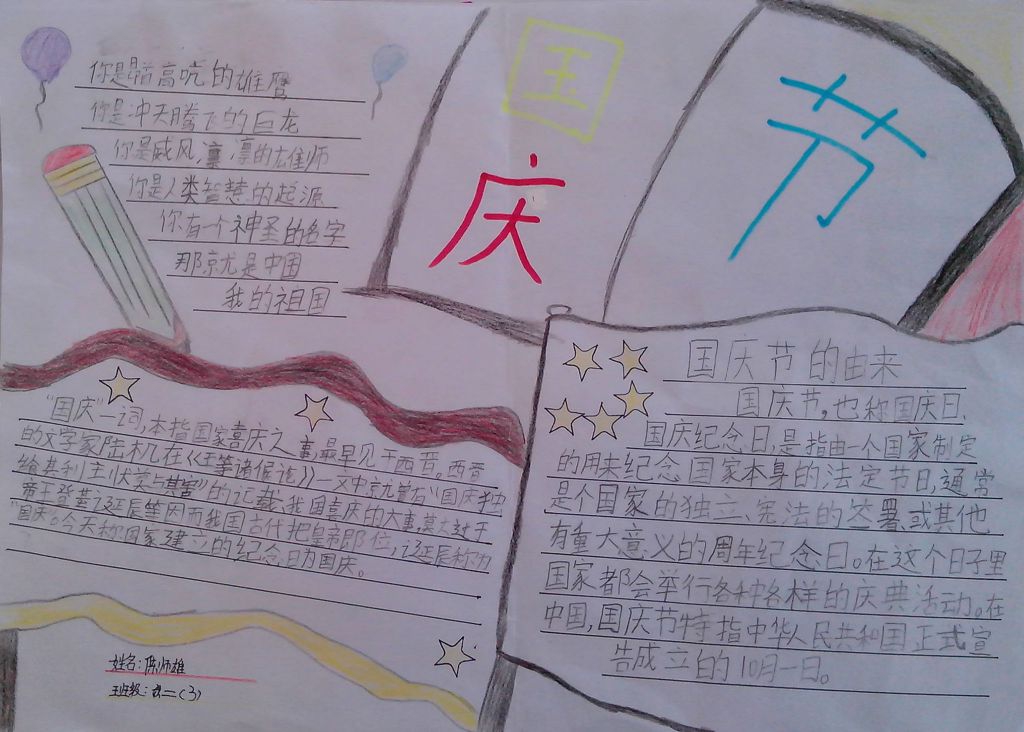 国
庆
节
你是昂首高吭的雄鹰
你是冲天腾飞的巨龙
你是威风凛凛的雄师
你是人类智慧的起源
你有一个神圣的名字
那就是中国
我的祖国
"国庆"一词,本指国家喜庆之事,最早见于西晋。西晋
的文学家陆机在《五等诸侯论》一文中就曾有"国庆独
飨其利,主忧莫与其害"的记载、我国喜庆的大事莫大过于
帝王登基、诞辰等因而我国古代把皇帝即位,诞辰称为
"国庆。今天称国家建立的纪念日为国庆。
姓名:陈师雄
班级:(3)
国庆节的由来
国庆节,也称国庆日、
国庆纪念日,是指由一个国家制定
的用来纪念国家本身的法定节日,通常
是个国家的独立、宪法的签署或其他
有重大意义的周年纪念日。在这个日子里
国家都会举行各种各样的庆典活动。在
中国,国庆节特指中华人民共和国正式宣
告成立的10月一日。